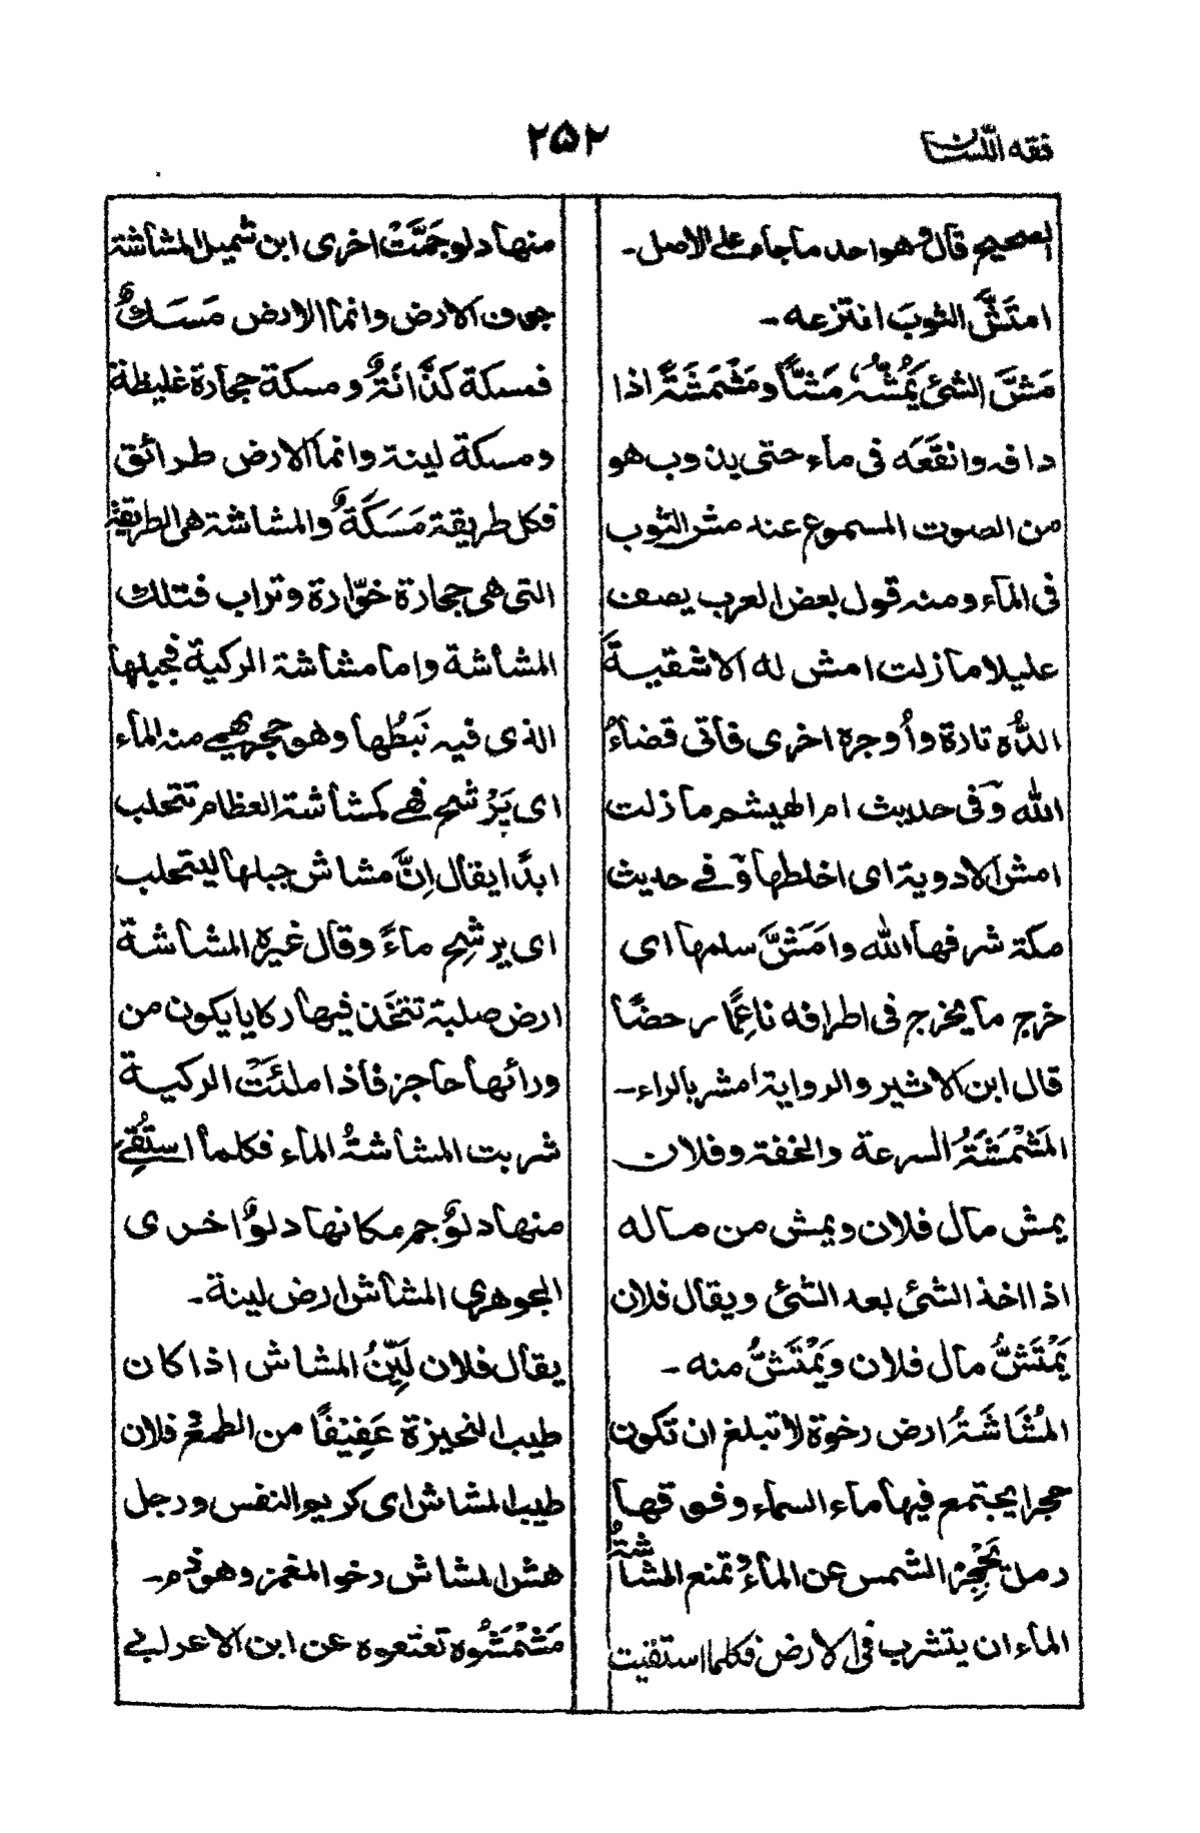 فقه اللسان
۲۵۲
الصحيح قال وهو احد ما جاء على الاصل۔
امتَشَّ الثوبَ انتزعه۔
مَشَّ الشئ يَمُشُّهُ مَشًّا ومَشْمَشَةً اذا
دافه وانقَعَه فى ماء حتى يذوب هو
من الصوت المسموع عند مش الثوب
فى الماء ومنه قول بعض العرب يصف
عليلا ما زلت امش له الاشقيةَ
الدُّه تارة واُوجره اخرى فأتى قضاءُ
الله وفى حديث ام الهيشم ما زلت
امش الادوية اى اخلطها وفى حديث
مكة شرفها الله وامَشَّ سلمها اى
خرج ما يخرج فى اطرافه ناعِمًا رحضًا
قال ابن الاثير والرواية امشر بالراء۔
المَشْمَشَةُ السرعة والخفة وفلان
يمش مال فلان ويمش من ماله
اذا اخذ الشئ بعد الشئ ويقال فلان
يَمْتَشُّ مال فلان ويَمْتَشُّ منه۔
المُشَاشَةُ ارض رخوة لا تبلغ ان تكون
حجرا يجتمع فيها ماء السماء وفوقها
رمل يَحْجِزُ الشمس عن الماءُ تمنع المشاشةُ
الماء ان يتشرب فى الارض فكلما استقيت
منها دلو جَمَّتْ اخرى ابن شميل المشاشة
جوف الارض وانما الارض مَسَكٌ
فمسكة كَذَّانَةٌ ومسكة حجارة غليظة
ومسكة لينة وانما الارض طرائق
فكل طريقة مَسَكَةٌ والمشاشة هى الطريقة
التى هى حجارة خوّارة وتراب فتلك
المشاشة واما مشاشة الركية فجبلها
الذى فيه نَبَطُها وهو حجر يهمى منه الماء
اى يَرْشح فهى كمشاشة العظام تتحلب
ابدًا يقال اِنَّ مشاش جبلها ليتحلب
اى يرشح ماءً وقال غيره المشاشة
ارض صلبة تتخذ فيها ركايا يكون من
ورائها حاجز فاذا ملئَتْ الركية
شربت المشاشةُ الماء فكلما استُقِىَ
منها دلوٌ جم مكانها دلوٌ اخرى
الجوهرى المشاش ارض لينة۔
يقال فلان لَيِّنُ المشاش اذا كان
طيب النحيزة عَفِيْفًا من الطمع وفلان
طيب المشاش اى كريم النفس ورجل
هش المشاش رخو المغمز وهو ذم۔
مَشْمَشُوه تعتعوه عن ابن الاعرابى